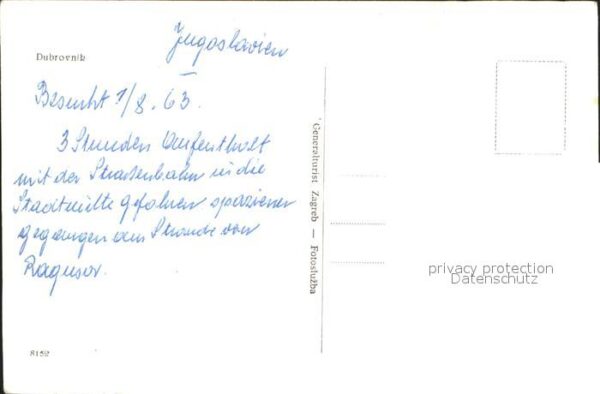 Jugoslavien
Dubrovnik
Besucht 1/8. 63.
3 Stunden Aufenthalt
mit der Strassenbahn in die
Stadtmitte gefahren spazieren
gegangen am Strande von
Ragusa.
8152
Generalturist Zagreb — Fotoslužba
privacy protection
Datenschutz